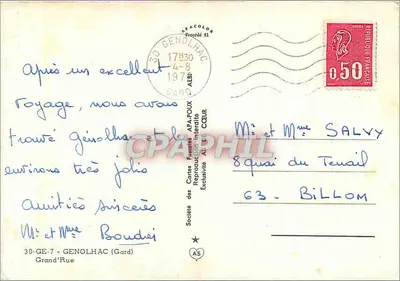 APACOLOR
Procédé 61
30 GENOLHAC
17H30
4-8
GARD
REPUBLIQUE FRANCAISE
0,50
Après un excellent
voyage, nous avons
trouvé génolhac et les
environs très jolis
Amitiés sincères
Mr et Mme Boudier
30-GE-7 - GENOLHAC (Gard)
Grand'Rue
Société des Cartes Postales APA-POUX - ALBI
Reproduction Interdite
Exclusivité AU SACRÉ CŒUR
AS
Mr et Mme SALVY
8 quai du Terrail
63 - BILLOM
CPAPHIL